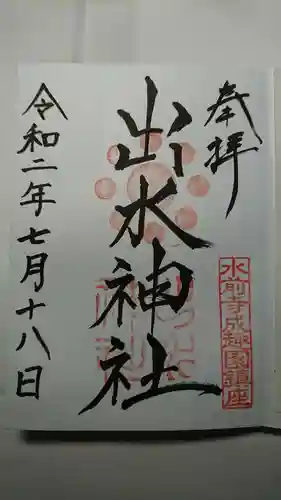 奉拝
水前寺成趣園鎮座
出水神社
令和二年七月十八日